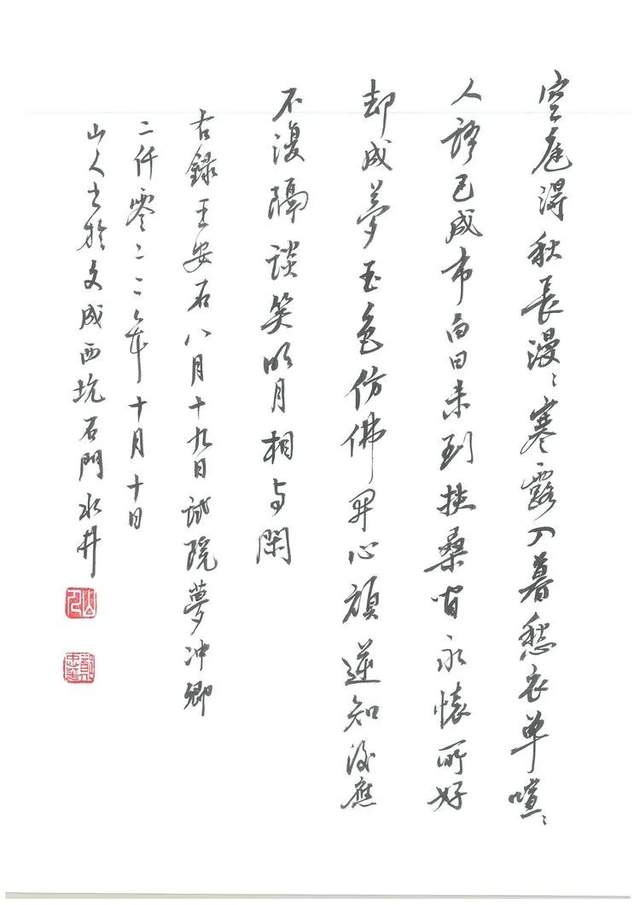 空庭淂秋長漫〻寒露入暮愁衣單喧〻
人語已成市白日未到扶桑间永懷所好
却成夢玉色仿佛开心顔逆知後應
不復隔談笑明月相与閑
右録王安石八月十九日試院夢冲卿
二仟零二二年十月十日
山人书於文成西坑石門水井
山人